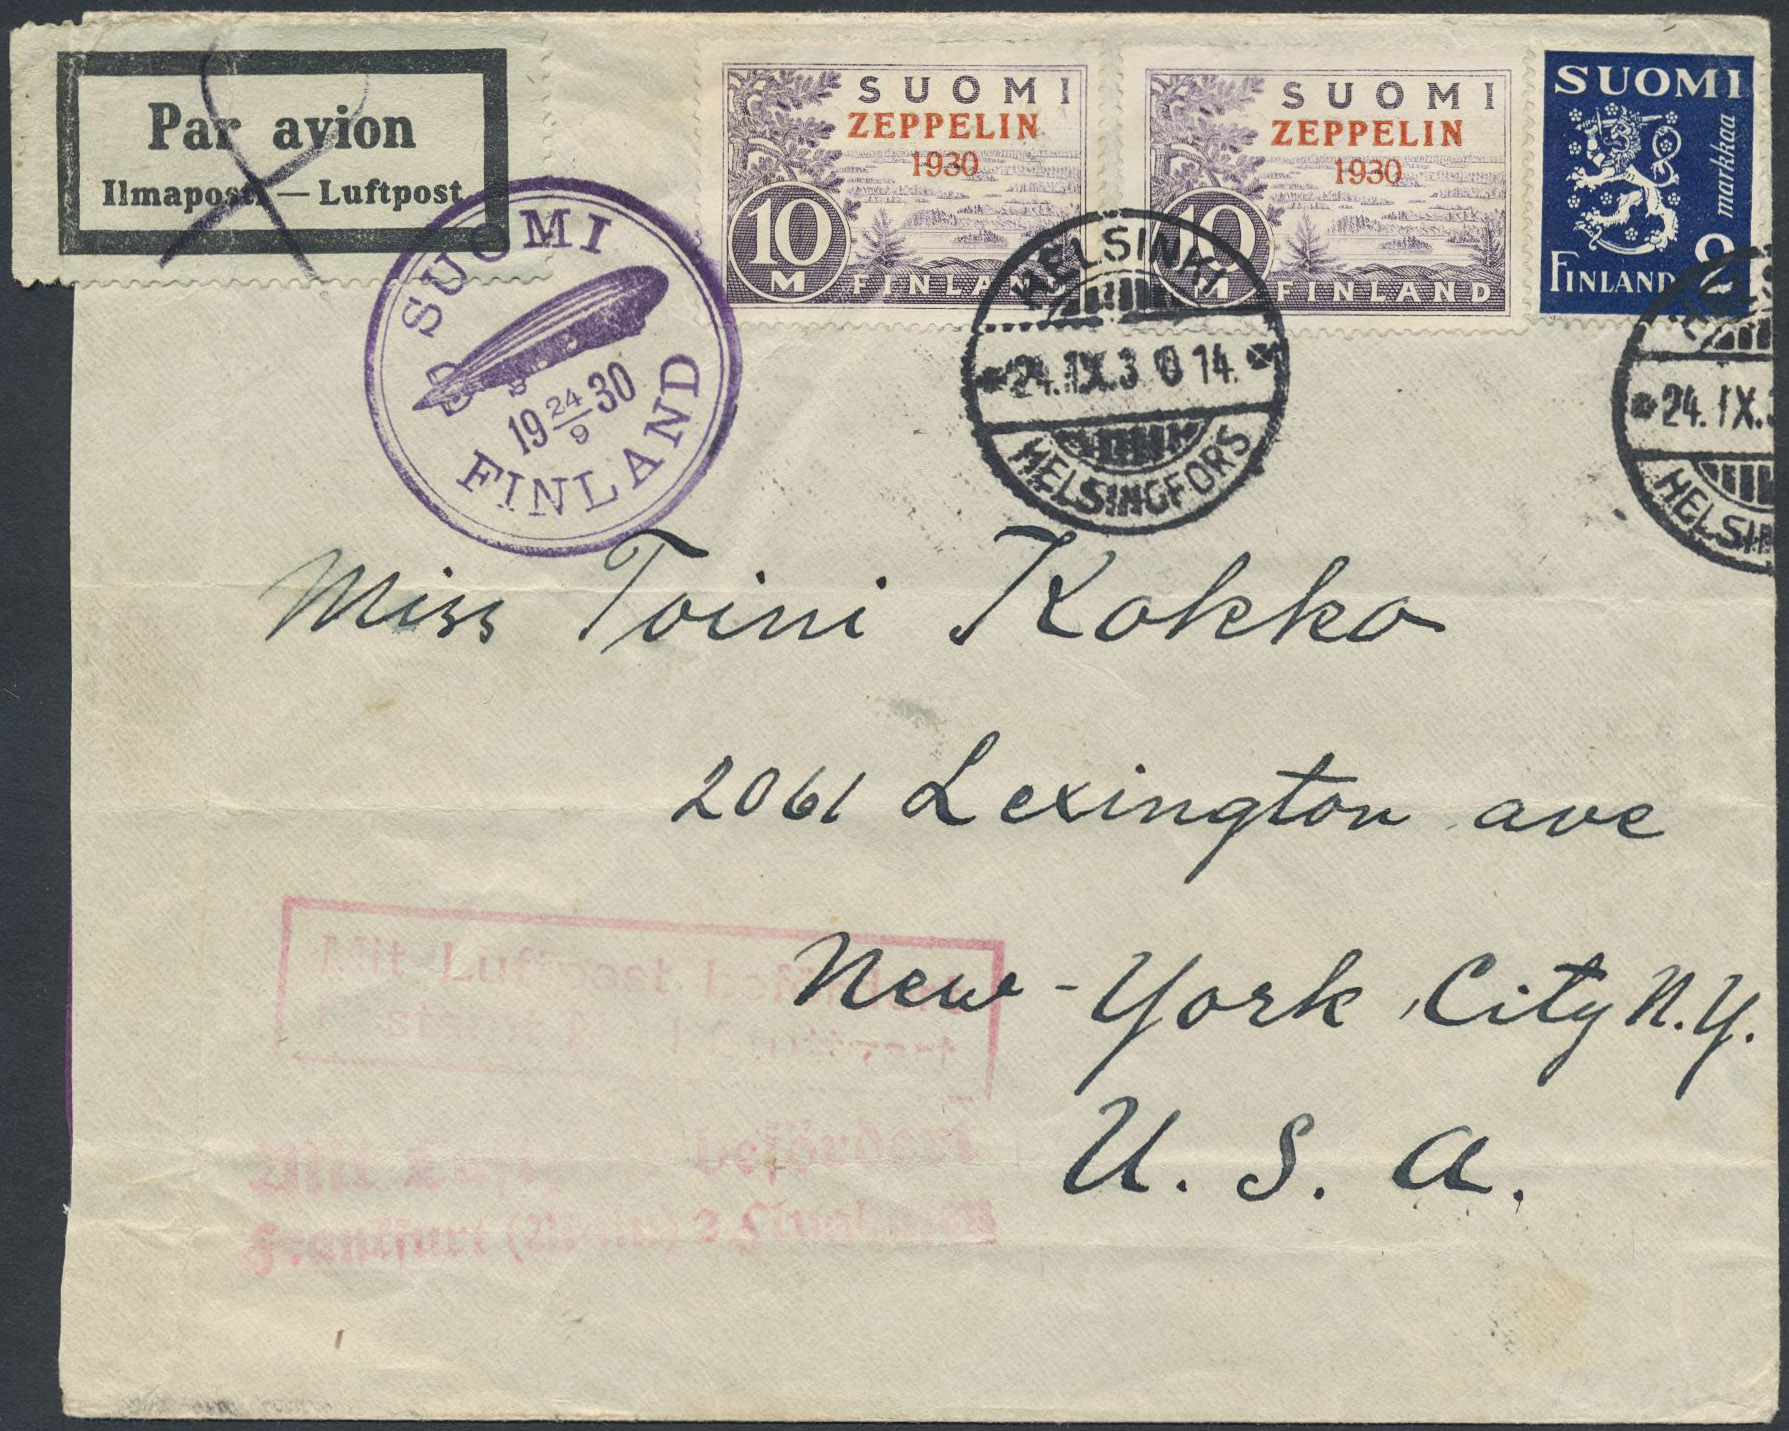 Par avion
Ilmaposti — Luftpost
SUOMI
ZEPPELIN
1930
10
M
FINLAND
SUOMI
ZEPPELIN
1930
10
M
FINLAND
SUOMI
markkaa
2
FINLAND
SUOMI
19 24/9 30
FINLAND
HELSINKI
24.IX.30 14.
HELSINGFORS
24.IX.3
HELSIN
Miss Toini Kokko
2061 Lexington ave
New-York City N.Y.
U. S. A.
Mit Luftpost befördert
Mit Luftpost befördert
Frankfurt (Main) 2 Flughafen